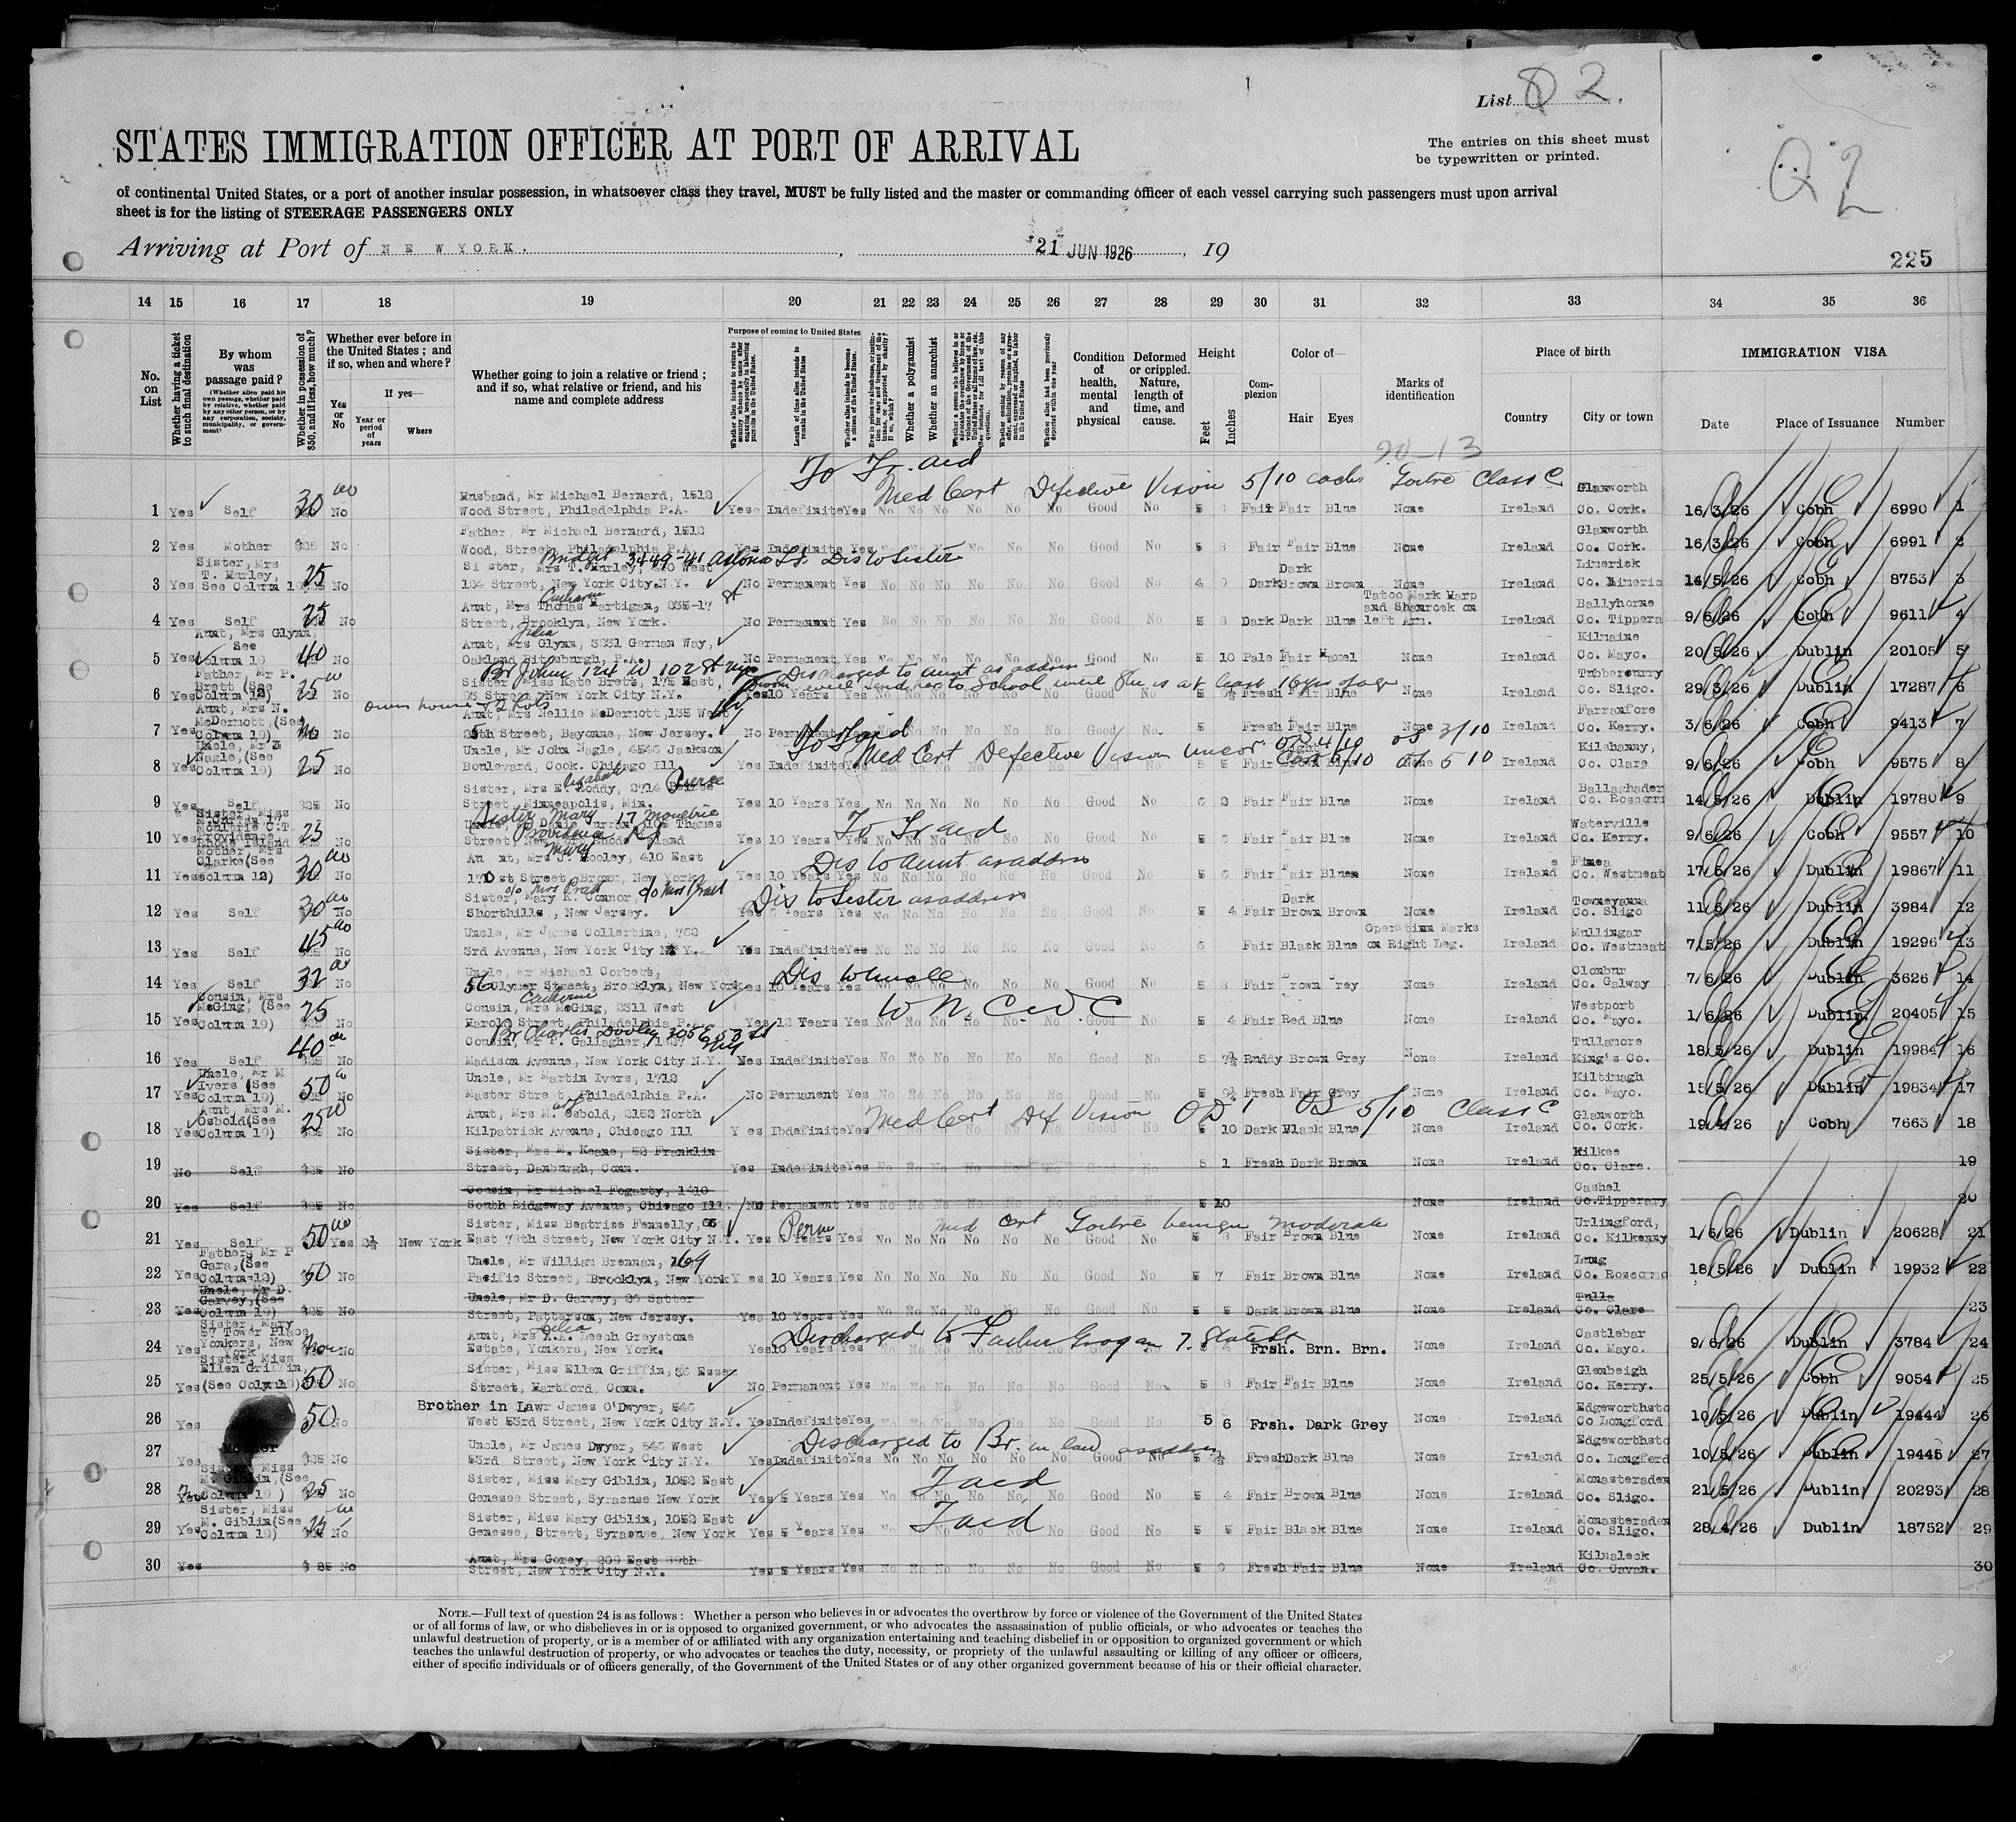 List 2.
STATES IMMIGRATION OFFICER AT PORT OF ARRIVAL
The entries on this sheet must
be typewritten or printed.
of continental United States, or a port of another insular possession, in whatsoever class they travel, MUST be fully listed and the master or commanding officer of each vessel carrying such passengers must upon arrival
sheet is for the listing of STEERAGE PASSENGERS ONLY
Arriving at Port of NEW YORK. , 21 JUN 1926 , 19
225
14 15 16 17 18 19 20 21 22 23 24 25 26 27 28 29 30 31 32 33 34 35 36
No. on List
Whether having a ticket to such final destination
By whom was passage paid?
(Whether alien paid his own passage, whether paid by relative, whether paid by any other person, or by any corporation, society, municipality, or government?
Whether in possession of $50, and if less, how much?
Whether ever before in the United States; and if so, when and where?
Yes or No
If yes—
Year or period of years
Where
Whether going to join a relative or friend; and if so, what relative or friend, and his name and complete address
Purpose of coming to United States
Length of time alien intends to remain in the United States
Whether alien intends to become a citizen of the United States
Whether a polygamist
Whether an anarchist
Whether alien had been previously deported within one year
Condition of health, mental and physical
Deformed or crippled. Nature, length of time, and cause.
Height
Feet Inches
Complexion
Color of—
Hair Eyes
Marks of identification
Place of birth
Country City or town
IMMIGRATION VISA
Date Place of Issuance Number
20-13
To Tr. aid
Med Cert Defective Vision 5/10 each Goitre Class C
Husband, Mr Michael Bernard, 1512 Glanworth
1 Yes Self 30 No Wood Street, Philadelphia P.A. Yes Indefinite Yes No No No No No No Good No 5 Fair Fair Blue None Ireland Co. Cork. 16/3/26 Cobh 6990 1
Father, Mr Michael Bernard, 1512 Glanworth
2 Yes Mother $25 No Wood, Street, Philadelphia P.A. Yes Indefinite Yes No No Good No 5 8 Fair Fair Blue None Ireland Co. Cork. 16/3/26 Cobh 6991 2
Bridget 3449-41 Astoria L.I. Dis to Sister
Sister, Mrs T. Hurley, See Column 19
3 Yes 25 No Sister, Mrs T. Hurley, West 124 Street, New York City.N.Y. No Permanent Yes No No No No No No Good No 4 9 Dark Dark Brown Brown None Ireland Limerick 14/5/26 Cobh 8753 3
Catherine
4 Yes Self 25 No Aunt, Mrs Thomas Hartigan, 235-17 Street, Brooklyn, New York. No Permanent Yes No No No No No No Good No 5 8 Dark Dark Blue Tatoo Mark Harp and Shamrock on left Arm. Ireland Ballyhorne Co. Tippera 9/6/26 Cobh 9611 4
Julia
5 Yes Aunt, Mrs Glynn, See Column 19 40 No Aunt, Mrs Glynn, 3231 German Way, Oakland Pittsburgh, P.A. No Permanent Yes No No No No No No Good No 5 10 Pale Fair Hazel None Ireland Kilmaine Co. Mayo. 20/5/26 Dublin 20105 5
Br John 124 W 102 St nyc Discharged to aunt as address
will send her to School until she is at least 16 yrs of age
6 Yes Father, Mr P. Brett (See Column 12) 25 No Sister Miss Kate Brett, 175 East, 93 Street, New York City N.Y. Yes 10 Years Yes Fresh Fair Blue None Ireland Tubbercurry Co. Sligo. 29/3/26 Dublin 17287 6
owns house + 2 lots
7 Yes Aunt, Mrs N. McDermott, (See Column 19) No Aunt, Mrs Nellie McDermott, 135 West 25th Street, Bayonne, New Jersey. No Permanent 5 Fresh Fair Blue None Ireland Farranfore Co. Kerry. 3/6/26 Cobh 9413 7
To Tr aid
Med Cert Defective Vision uncor. OD 4/10 OS 3/10
8 Yes Uncle, Mr J Nagle, (See Column 19) 25 No Uncle, Mr John Nagle, 4546 Jackson Boulevard, Cook. Chicago Ill. Yes Indefinite Yes 5 5 Fair Ireland Kilshanny, Co. Clare 9/6/26 Cobh 9575 8
Elizabeth Pierce
9 Yes Self $25 No Sister, Mrs E. Roddy, 2714 Street, Minneapolis, Min. Yes 10 Years Yes No No No No No No Good No 6 2 Fair Fair Blue None Ireland Ballaghader Co. Roscom 14/5/26 Dublin 19780 9
Sister Mary 17 Moultrie Providence RI
To Tr aid
10 Yes 25 No Street, New York Rhode Island Yes 10 Years Yes No No No No No No Good No 5 6 Fair Fair Blue None Ireland Waterville Co. Kerry. 9/6/26 Cobh 9557 10
Mary Dis to aunt as address
11 Yes Mother, Mrs Clarke (See Column 12) 30 No Aunt, Mrs J. Hooley, 410 East 170st Street, Bronx, New York Yes 10 Years Yes No No No No No No Good No 5 6 Fair Fair Blue None Ireland Finea Co. Westmeat 17/5/26 Dublin 19867 11
c/o Mrs Pratt Dis to Sister as address
12 Yes Self 30 No Sister, Mary K. Connor, Shorthills, New Jersey. Yes Years Yes No No No No No No Good No 5 4 Fair Dark Brown Brown None Ireland Co. Sligo 11/6/26 Dublin 3984 12
13 Yes Self 45 No Uncle, Mr James Collertine, 762 3rd Avenue, New York City N.Y. Yes Indefinite Yes No No No No No No Good No 6 Fair Black Blue Operation Marks on Right Leg. Ireland Mullingar Co. Westmeat 7/5/26 Dublin 19296 13
Dis to uncle
14 Yes Self 32 No Uncle, Mr Michael Corbett, 56 Clymer Street, Brooklyn, New York Yes 10 Years Yes No No No No No No Good No 5 8 Fair Brown Grey None Ireland Clonbur Co. Galway 7/6/26 Dublin 3626 14
Catherine
15 Yes Cousin, Mrs McGing, (See Column 19) 25 No Cousin, Mrs McGing, 2311 West Harold Street, Philadelphia P.A. Yes 12 Years Yes No No No No No No Good No 5 4 Fair Red Blue None Ireland Westport Co. Mayo. 1/6/26 Dublin. 20405 15
Br Charles Dooley 305 E 53 St
16 Yes Self 40 No Cousin, Mr P. Gallagher, 1637 Madison Avenue, New York City N.Y. Yes Indefinite Yes No No No No No No Good No 5 7½ Ruddy Brown Grey None Ireland Tullamore King's Co. 18/5/26 Dublin 19984 16
17 Yes Uncle, Mr M Ivers (See Column 19) 50 No Uncle, Mr Martin Ivers, 1712 Master Street, Philadelphia P.A. No Permanent Yes No No No No No No Good No 5 9½ Fresh Fair Grey None Ireland Kiltimagh Co. Mayo. 15/5/26 Dublin 19834 17
Med Cert Def Vision OD 1 OS 5/10 Class C
18 Yes Aunt, Mrs M. Osbold (See Column 19) 25 No Aunt, Mrs M. Osbold, 2152 North Kilpatrick Avenue, Chicago Ill Yes Ibdefinite Yes No No No No 5 10 Dark Black Blue None Ireland Glanworth Co. Cork. 19/4/26 Cobh 7663 18
19 No Self $25 No Sister, Mrs M. Keane, 52 Franklin Street, Danburgh, Conn. Yes Indefinite Yes No No No No No No Good No 5 1 Fresh Dark Brown None Ireland Kilkee Co. Clare. 19
20 Yes Self $25 No Cousin, Mr Michael Fogarty, 1410 South Ridgeway Avenue, Chicago Ill. No Permanent Yes No No No No No No Good No 5 10 None Ireland Cashel Co.Tipperary 20
Perm Med cert Goitre benign moderate
21 Yes Self 50 Yes 2½ New York Sister, Miss Beatrice Fennelly, East 78th Street, New York City N.Y. Yes Years Yes No No No No No No Good No 5 8 Fair Brown Blue None Ireland Urlingford, Co. Kilkenny 1/6/26 Dublin 20628 21
22 Yes Father, Mr P Gara, (See Column 12) 50 No Uncle, Mr William Brennan, 769 Pacific Street, Brooklyn, New York Yes 10 Years Yes No No No No No No Good No 5 7 Fair Brown Blue None Ireland Lung Co. Roscommo 18/5/26 Dublin 19932 22
23 Yes Uncle, Mr D. Garvey, (See Column 19) $25 No Uncle, Mr D. Garvey, 26 Satter Street, Patterson, New Jersey. Yes 10 Years Yes No No No No No No Good No 5 5 Dark Brown Blue None Ireland Tulla Co. Clare 23
Delia Discharged to Father Grogan 7. State St
24 Yes Sister, Mary 57 Tower Place Yonkers, New York No Aunt, Mrs Leech Greystone Estate, Yonkers, New York. Yes 10 Years Yes Frsh. Brn. Brn. None Ireland Castlebar Co. Mayo. 9/6/26 Dublin 3784 24
25 Yes Sister, Miss Ellen Griffin, (See Column 19) 50 No Sister, Miss Ellen Griffin, 56 Essex Street, Hartford, Conn. No Permanent Yes No No No No No No Good No. 5 8 Fair Fair Blue None Ireland Glenbeigh Co. Kerry. 25/5/26 Cobh 9054 25
26 Yes 50 No Brother in Law Mr James O'Dwyer, 546 West 53rd Street, New York City N.Y. Yes Indefinite Yes No No No No No No Good No 5 6 Frsh. Dark Grey None Ireland Edgeworthsto Co Longford 10/5/26 Dublin 19444 26
Discharged to Br. in law as address
27 Yes Mother $25 No Uncle, Mr James Dwyer, 546 West 53rd Street, New York City N.Y. Yes Indefinite Yes No No No No No No Good No 5 Fresh Dark Blue None Ireland Edgeworthsto Co. Longford 10/5/26 Dublin 19445 27
T aid
28 Yes Sister Miss M. Giblin, (See Column 19) 25 No Sister, Miss Mary Giblin, 1052 East Genesee Street, Syracuse New York Yes 5 Years Yes No No No No No No Good No 5 4 Fair Brown Blue None Ireland Monasteraden Co. Sligo. 21/5/26 Dublin 20293 28
T aid
29 Yes Sister, Miss M. Giblin (See Column 19) 25 No Sister, Miss Mary Giblin, 1052 East Genesee, Street, Syracuse, New York Yes 5 Years Yes No No No No No No Good No 5 5 Fair Black Blue None Ireland Monasteraden Co. Sligo. 28/4/26 Dublin 18752 29
30 Yes $ 25 No Aunt, Mrs Gorey, 209 East 89th Street, New York City N.Y. Yes 5 Years Yes No No No No No No Good No 5 9 Fresh Fair Blue None Ireland Kilnaleck Co. Cavan. 30
NOTE.—Full text of question 24 is as follows: Whether a person who believes in or advocates the overthrow by force or violence of the Government of the United States
or of all forms of law, or who disbelieves in or is opposed to organized government, or who advocates the assassination of public officials, or who advocates or teaches the
unlawful destruction of property, or is a member of or affiliated with any organization entertaining and teaching disbelief in or opposition to organized government or which
teaches the unlawful destruction of property, or who advocates or teaches the duty, necessity, or propriety of the unlawful assaulting or killing of any officer or officers,
either of specific individuals or of officers generally, of the Government of the United States or of any other organized government because of his or their official character.